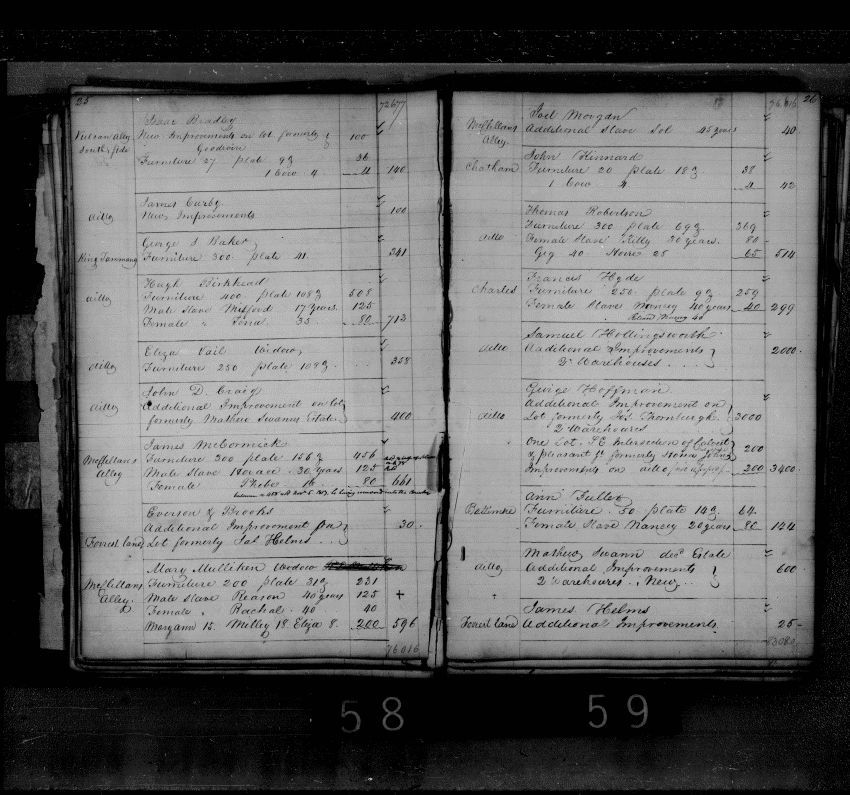 25 72677
Isaac Bradley
Vulcan Alley New Improvements on lot formerly 100
South side Goodwin
Furniture 27 plate 9z 36
1 Cow 4 4 140
James Curby
ditto New Improvements 100
George S Baker
King Tammany Furniture 300 plate 41 341
Hugh Birkhead
ditto Furniture 400 plate 108z 508
Male Slave 17 years 125
Female " 35 80 713
Eliza Vail Widow
ditto Furniture 250 plate 108z 358
John D. Craig
ditto Additional Improvement on lot
formerly Mathew Swanns Estate 400
James McCormick
McClellans Furniture 300 plate 156z 456
Alley Male Slave Horace 30 years 125
Female Phebe 16 80 661
Everson & Brooks
Additional Improvement on 30
Forrest Lane Lot formerly Jas Helms
Mary Mulliken Widow
McClellans Furniture 200 plate 31z 231
Alley Male Slave Reason 40 years 125 +
Female " Rachal 40 40
Maryann 15. Milley 18. Eliza 8. 200 596
76016
76016 26
Joel Morgan
McClellans Additional Slave Sol 45 years 40
Alley
John Kinnard
Chatham Furniture 20 plate 18z 38
1 Cow 4 4 42
Thomas Robertson
Furniture 300 plate 69z 369
ditto Female Slave Kitty 30 years. 80
Gig 40 Horse 25 65 514
Francis Hyde
Charles Furniture 250 plate 9z 259
Female Slave Nancy 40 years 40 299
Samuel Hollingsworth
ditto Additional Improvements 2000
2 Warehouses
George Hoffman
Additional Improvement on
ditto Lot formerly Jos Thornburgh 3000
2 Warehouses
One Lot. SE Intersection of Calvert 200
& pleasant St formerly
Improvements on ditto 200 3400
Ann Fuller
Baltimore Furniture 50 plate 14z 64
Female Slave Nancy 20 years 80 144
Mathew Swann decd Estate
ditto Additional Improvements 600
2 Warehouses New
James Helms
Forrest Lane Additional Improvements 25
83080
58 59